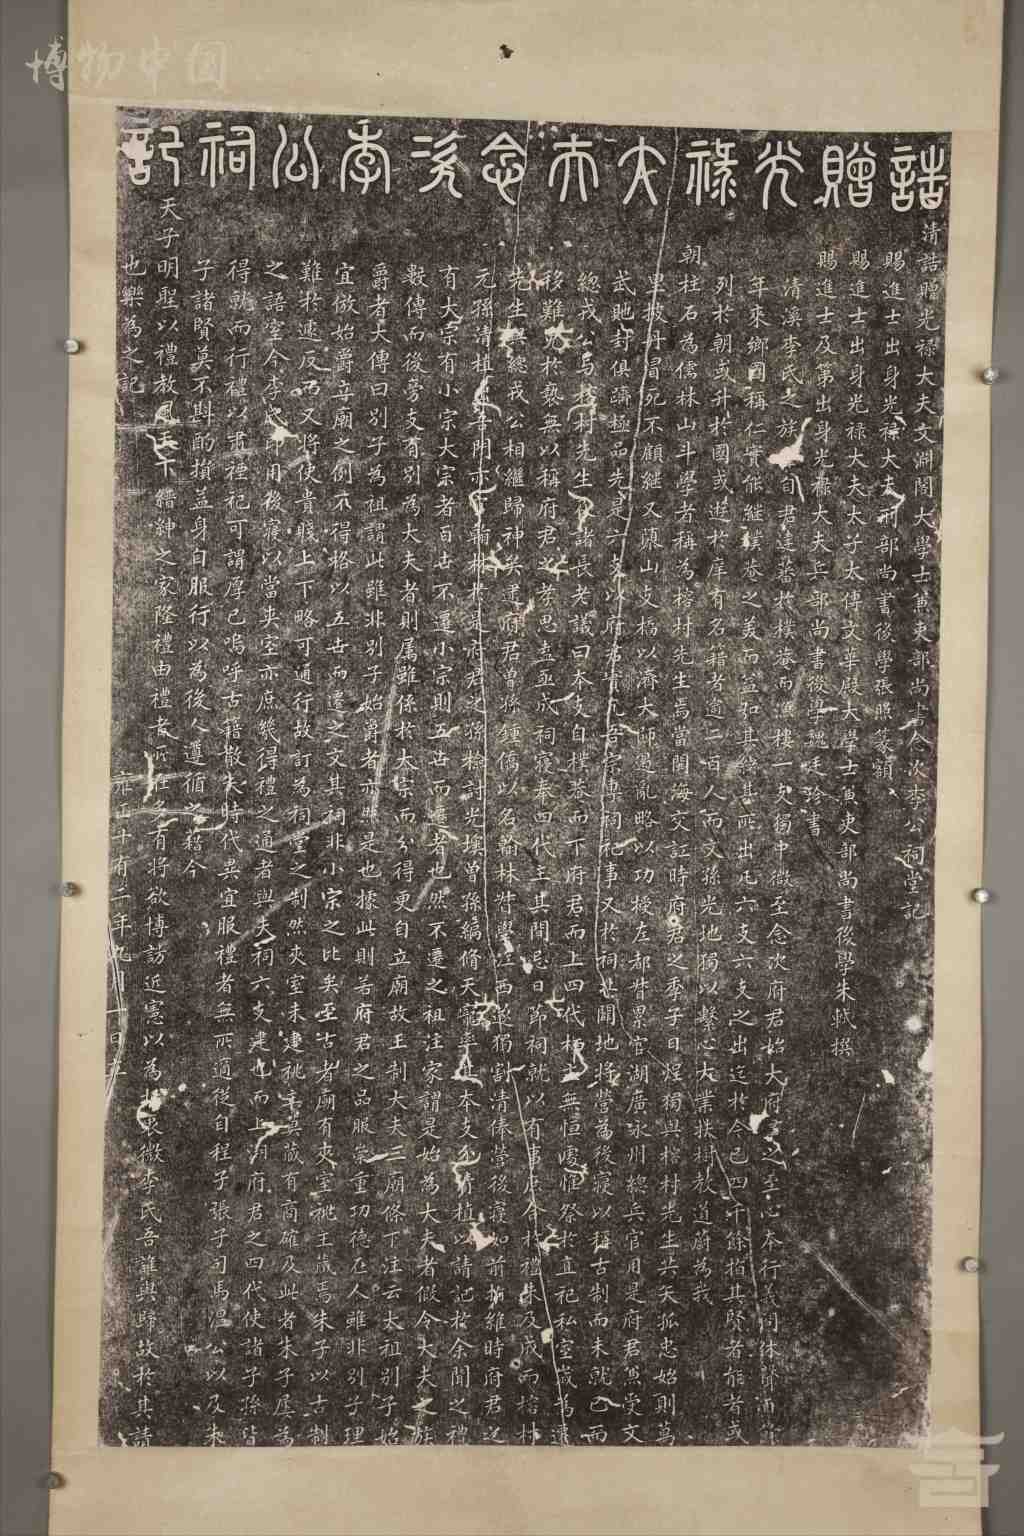 博物中国
誥贈光祿大夫念次李公祠記
清誥贈光祿大夫文淵閣大學士兼吏部尚書念次李公祠堂記
賜進士出身光祿大夫刑部尚書後學張照篆額
賜進士出身光祿大夫太子太傅文華殿大學士兼吏部尚書後學朱軾撰
賜進士及第出身光祿大夫兵部尚書後學魏廷珍書
清溪李氏之族自君達蕃於樸菴而漁樓一支獨中微至念次府君始大府君之至心本行義
年來鄉國稱仁實能繼樸菴之美而益加其緒其所出凡六支六支之出迄於今已四千餘指其賢者能者或
列於朝或升於國或遊於庠有名籍者逾二百人而文孫光地獨以繫心大業扶樹教道蔚為我
朝柱石為儒林山斗學者稱為榕村先生焉當閩海交訌時府君之季子日煜獨與榕村先生共矢孤忠始則萬
里披丹冒死不顧繼又蓽山支橋以濟大師遏亂略以功授左都督累官湖廣永州總兵官用是府君焚受文
武貤封俱躋極品先是六支以府君
總戎公與榕村先生在諸長老議曰本支自樸菴而下府君而上四代栖主無恒處惟祭於直祀私室歲為遷
移難免於褻無以稱府君之孝思盍亟成祠寢奉四代主其間忌日節祠就以有事庶合於禮未及成而榕村
先生與總戎公相繼歸神矣逮府君曾孫鍾僑以名翰林督學江西遂獨割清俸營後寢如前
元孫清植
有大宗有小宗大宗者百世不遷小宗則五世而遷者也然不遷之祖注家謂是始為大夫者假令大夫之族
數傳而後旁支有別為大夫者則屬雖係於大宗而分得更自立廟故王制大夫三廟條下注云太祖別子始
爵者大傳曰別子為祖謂此雖非別子始爵者亦然是也據此則若府君之品服崇重功德在人雖非別子理
宜倣始爵立廟之例不得格以五世而遷之文其祠非小宗之比矣至古者廟有夾室祧主藏焉朱子以古制
難於速反而又將使貴賤上下略可通行故訂為祠堂之制然夾室未建祧主莫藏有商確及此者朱子屢為
之語室今李氏即用後寢以當夾室亦庶幾得禮之通者與夫祠六支建也而上溯府君之四代使諸子孫皆
得就而行禮以肅禋祀可謂厚已嗚呼古籍散失時代異宜服禮者無所適從自程子張子司馬溫公以及朱
子諸賢莫不斟酌損益身自服行以為後人遵循之藉今
天子明聖以禮教風天下縉紳之家隆禮由禮者所在多有將欲博訪近憲以為 李氏吾誰與歸故於其請
也樂為之記
雍正十有二年九月